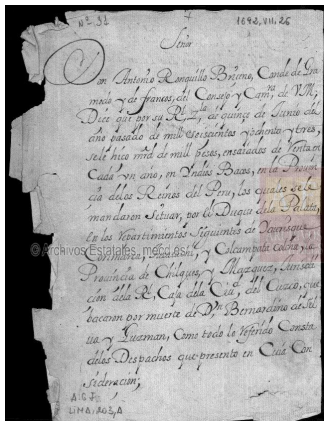 Nº 92
1692, VII, 26
Señor
Don Antonio Ronquillo Briceño, Conde de Gra
medo y de francos, del Consejo y Camª de VM;
Dice que por su Rl Zla de quince de Junio del
año pasado de mill seiscientos y ochenta y tres,
se le hizo mrd de mill pesos, ensayados de Renta en
Cada un año, en Indios Bacos, en la Provin
cia de los Reinos del Peru, los cuales se le
mandaron Situar, por el Duque de la Palata,
en los Repartimientos Siguientes de
y Colcampata
Provincia de Chilques, y Masques,
ción de la Rl Caja de la Ciud del Cuzco, que
bacaron por muerte de Dn Bernardino de Sil
ua y Guzman, Como todo lo Referido Consta
de los Despachos que presento en Cuia Con
sideración;
© Archivos Estatales, mecd.es
LIMA, 203, A